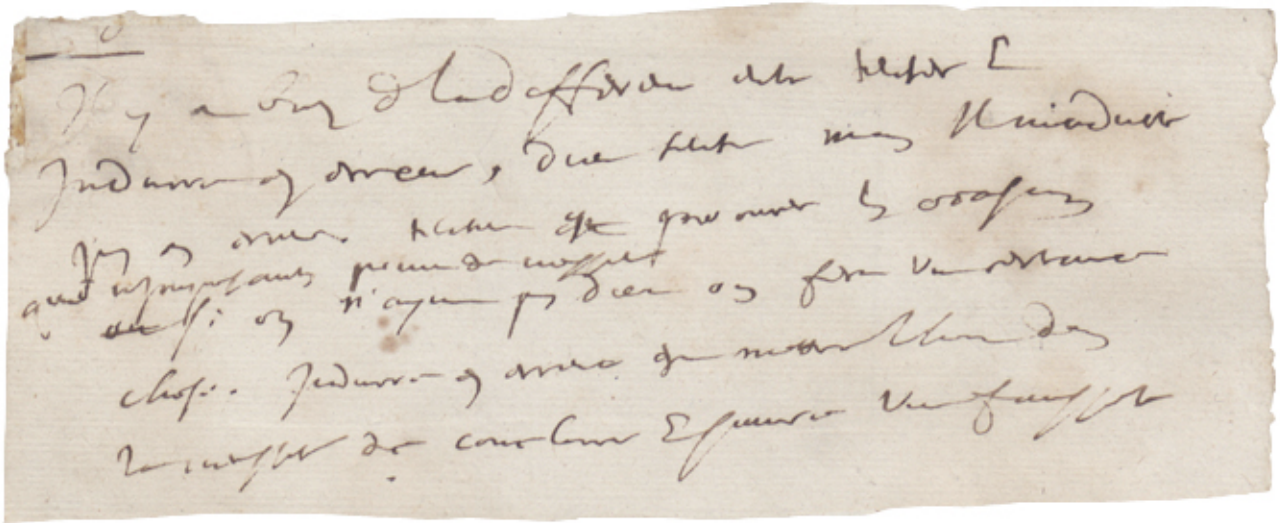 Il y a bien de la difference entre tenter &
Induire en erreur, dieu tente mais Il n'induit
pas en erreur. tenter est procurer les occasions
que n'imposant point de necessité
si on n'ayme pas dieu on fera une certaine
chose. Induire en erreur est mettre l'homme dans
la necessité de conclure & suivre une fausseté